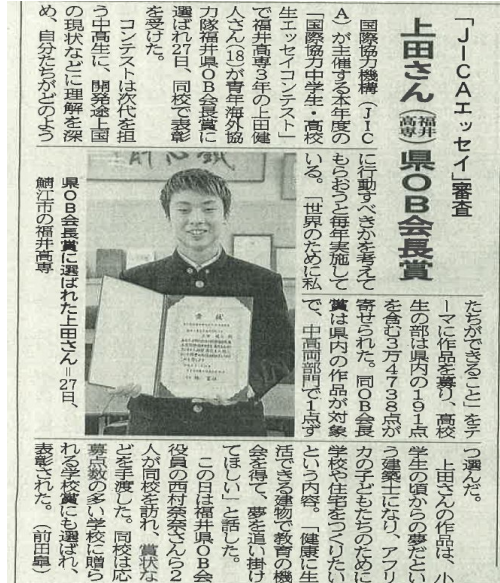 「JICAエッセイ」審査
上田さん(福井高専)県OB会長賞
国際協力機構(JIC
A)が主催する本年度の
「国際協力中学生・高校
生エッセイコンテスト」
で福井高専3年の上田健
人さん(18)が青年海外協
力隊福井県OB会長賞に
選ばれ27日、同校で表彰
を受けた。
コンテストは次代を担
う中高生に、開発途上国
の現状などに理解を深
め、自分たちがどのよう
に行動すべきかを考えて
もらおうと毎年実施して
いる。「世界のために私
たちができること」をテ
ーマに作品を募り、高校
生の部は県内の191点
を含む3万4738点が
寄せられた。同OB会長
賞は県内の作品が対象
で、中高両部門で1点ず
つ選んだ。
上田さんの作品は、小
学生の頃からの夢だとい
う建築士になり、アフリ
カの子どもたちのために
学校や住宅をつくりたい
という内容。「健康に生
活できる建物で教育の機
会を得て、夢を追い掛け
てほしい」と話した。
この日は福井県OB会
役員の西村奈奈さら2
人が同校を訪れ、賞状な
どを手渡した。同校は応
募点数の多い学校に贈ら
れる学校賞にも選ばれ、
表彰された。
県OB会長賞に選ばれた上田さん=27日、
鯖江市の福井高専
賞状